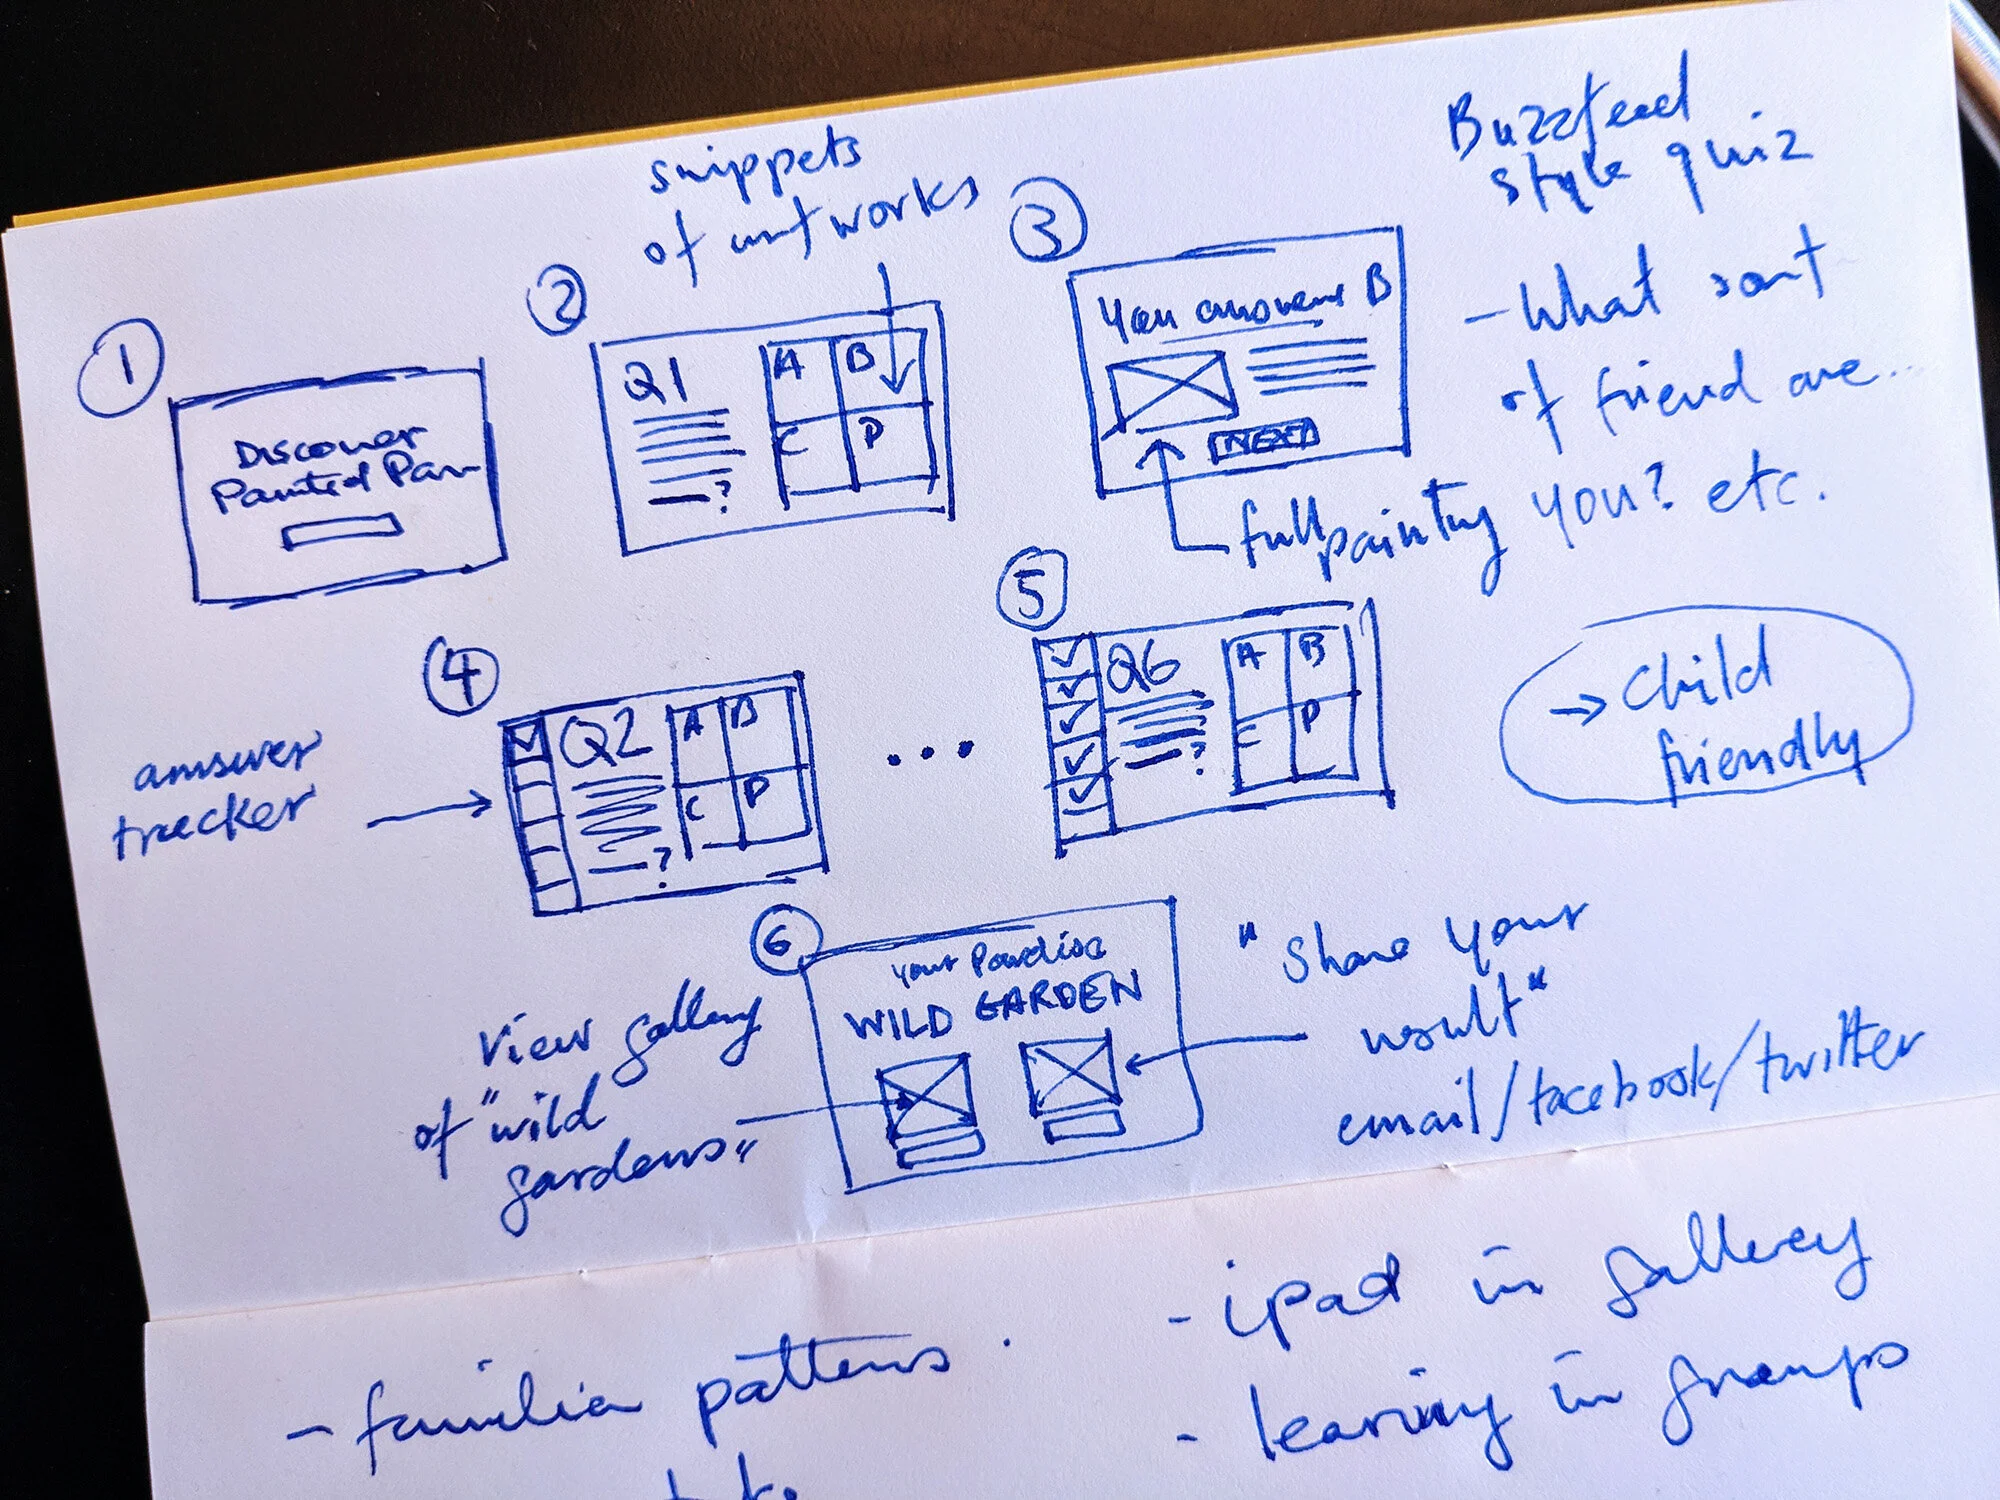 Buzzfeed
style quiz
- What sort
of friend are...
you? etc.
→ Child
friendly
snippets
of artworks
1
Discover
Painted Par
2
Q1
?
A B
C D
3
You answered B
NEXT
full painting
4
answer
tracker
Q2
?
A B
C D
...
5
Q6
?
A B
C D
6
Your Paradise
WILD GARDEN
View gallery
of "wild
gardens"
"Share your
result"
email/facebook/twitter
- familiar patterns
- ipad in gallery
- learning in groups